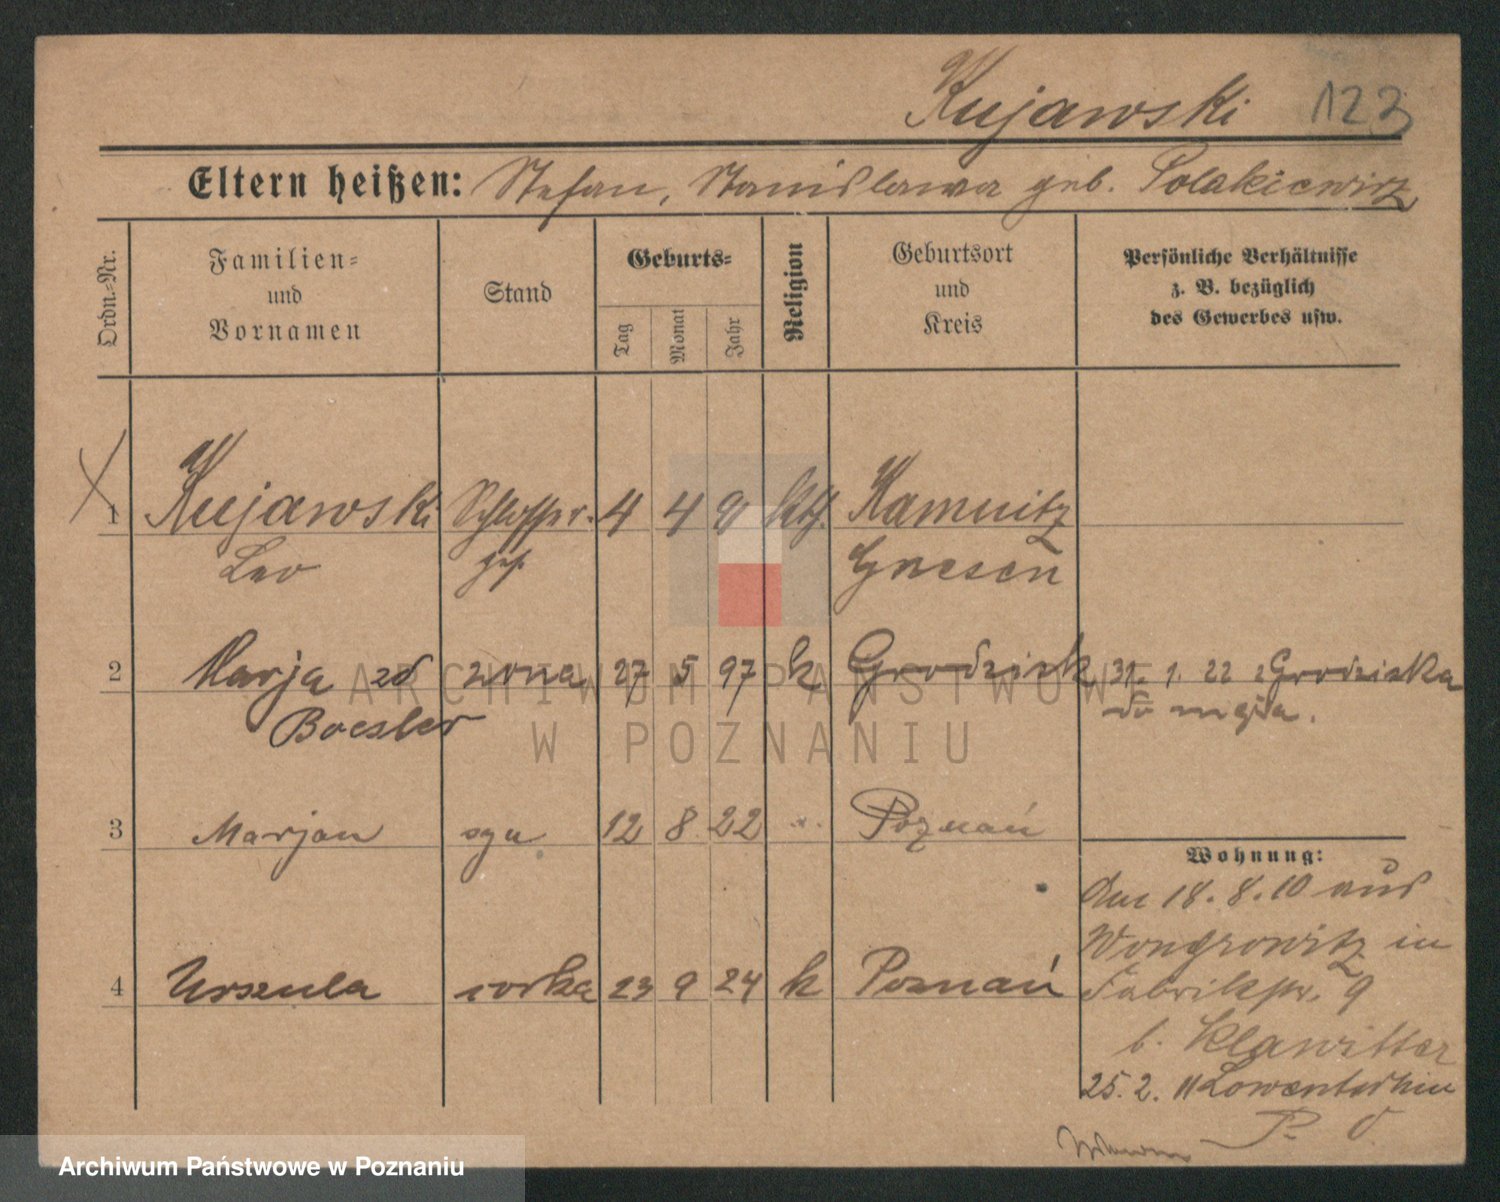 Kujawski 123
Eltern heißen: Stefan, Stanislawa geb. Polakiewicz
Ordn.-Nr.
Familien-
und
Vornamen
Stand
Geburts-
Tag
Monat
Jahr
Religion
Geburtsort
und
Kreis
Persönliche Verhältnisse
z. B. bezüglich
des Gewerbes usw.
1 Kujawski Schlosser- 4 4 kth. Kamnitz
Leo ges. Gnesen
2 Marja zd żona 27 5 97 k Grodzisk 31. 1. 22 z Grodziska
Boesler do męża.
3 Marjan syn 12 8 22 Poznań
Wohnung:
Am 18. 8. 10 aus
Wongrowitz in
4 Urszula córka 23 9 24 k Poznań Fabrikstr. 9
b. Klawitter
25. 2. 11
ARCHIWUM PAŃSTWOWE
W POZNANIU
Archiwum Państwowe w Poznaniu